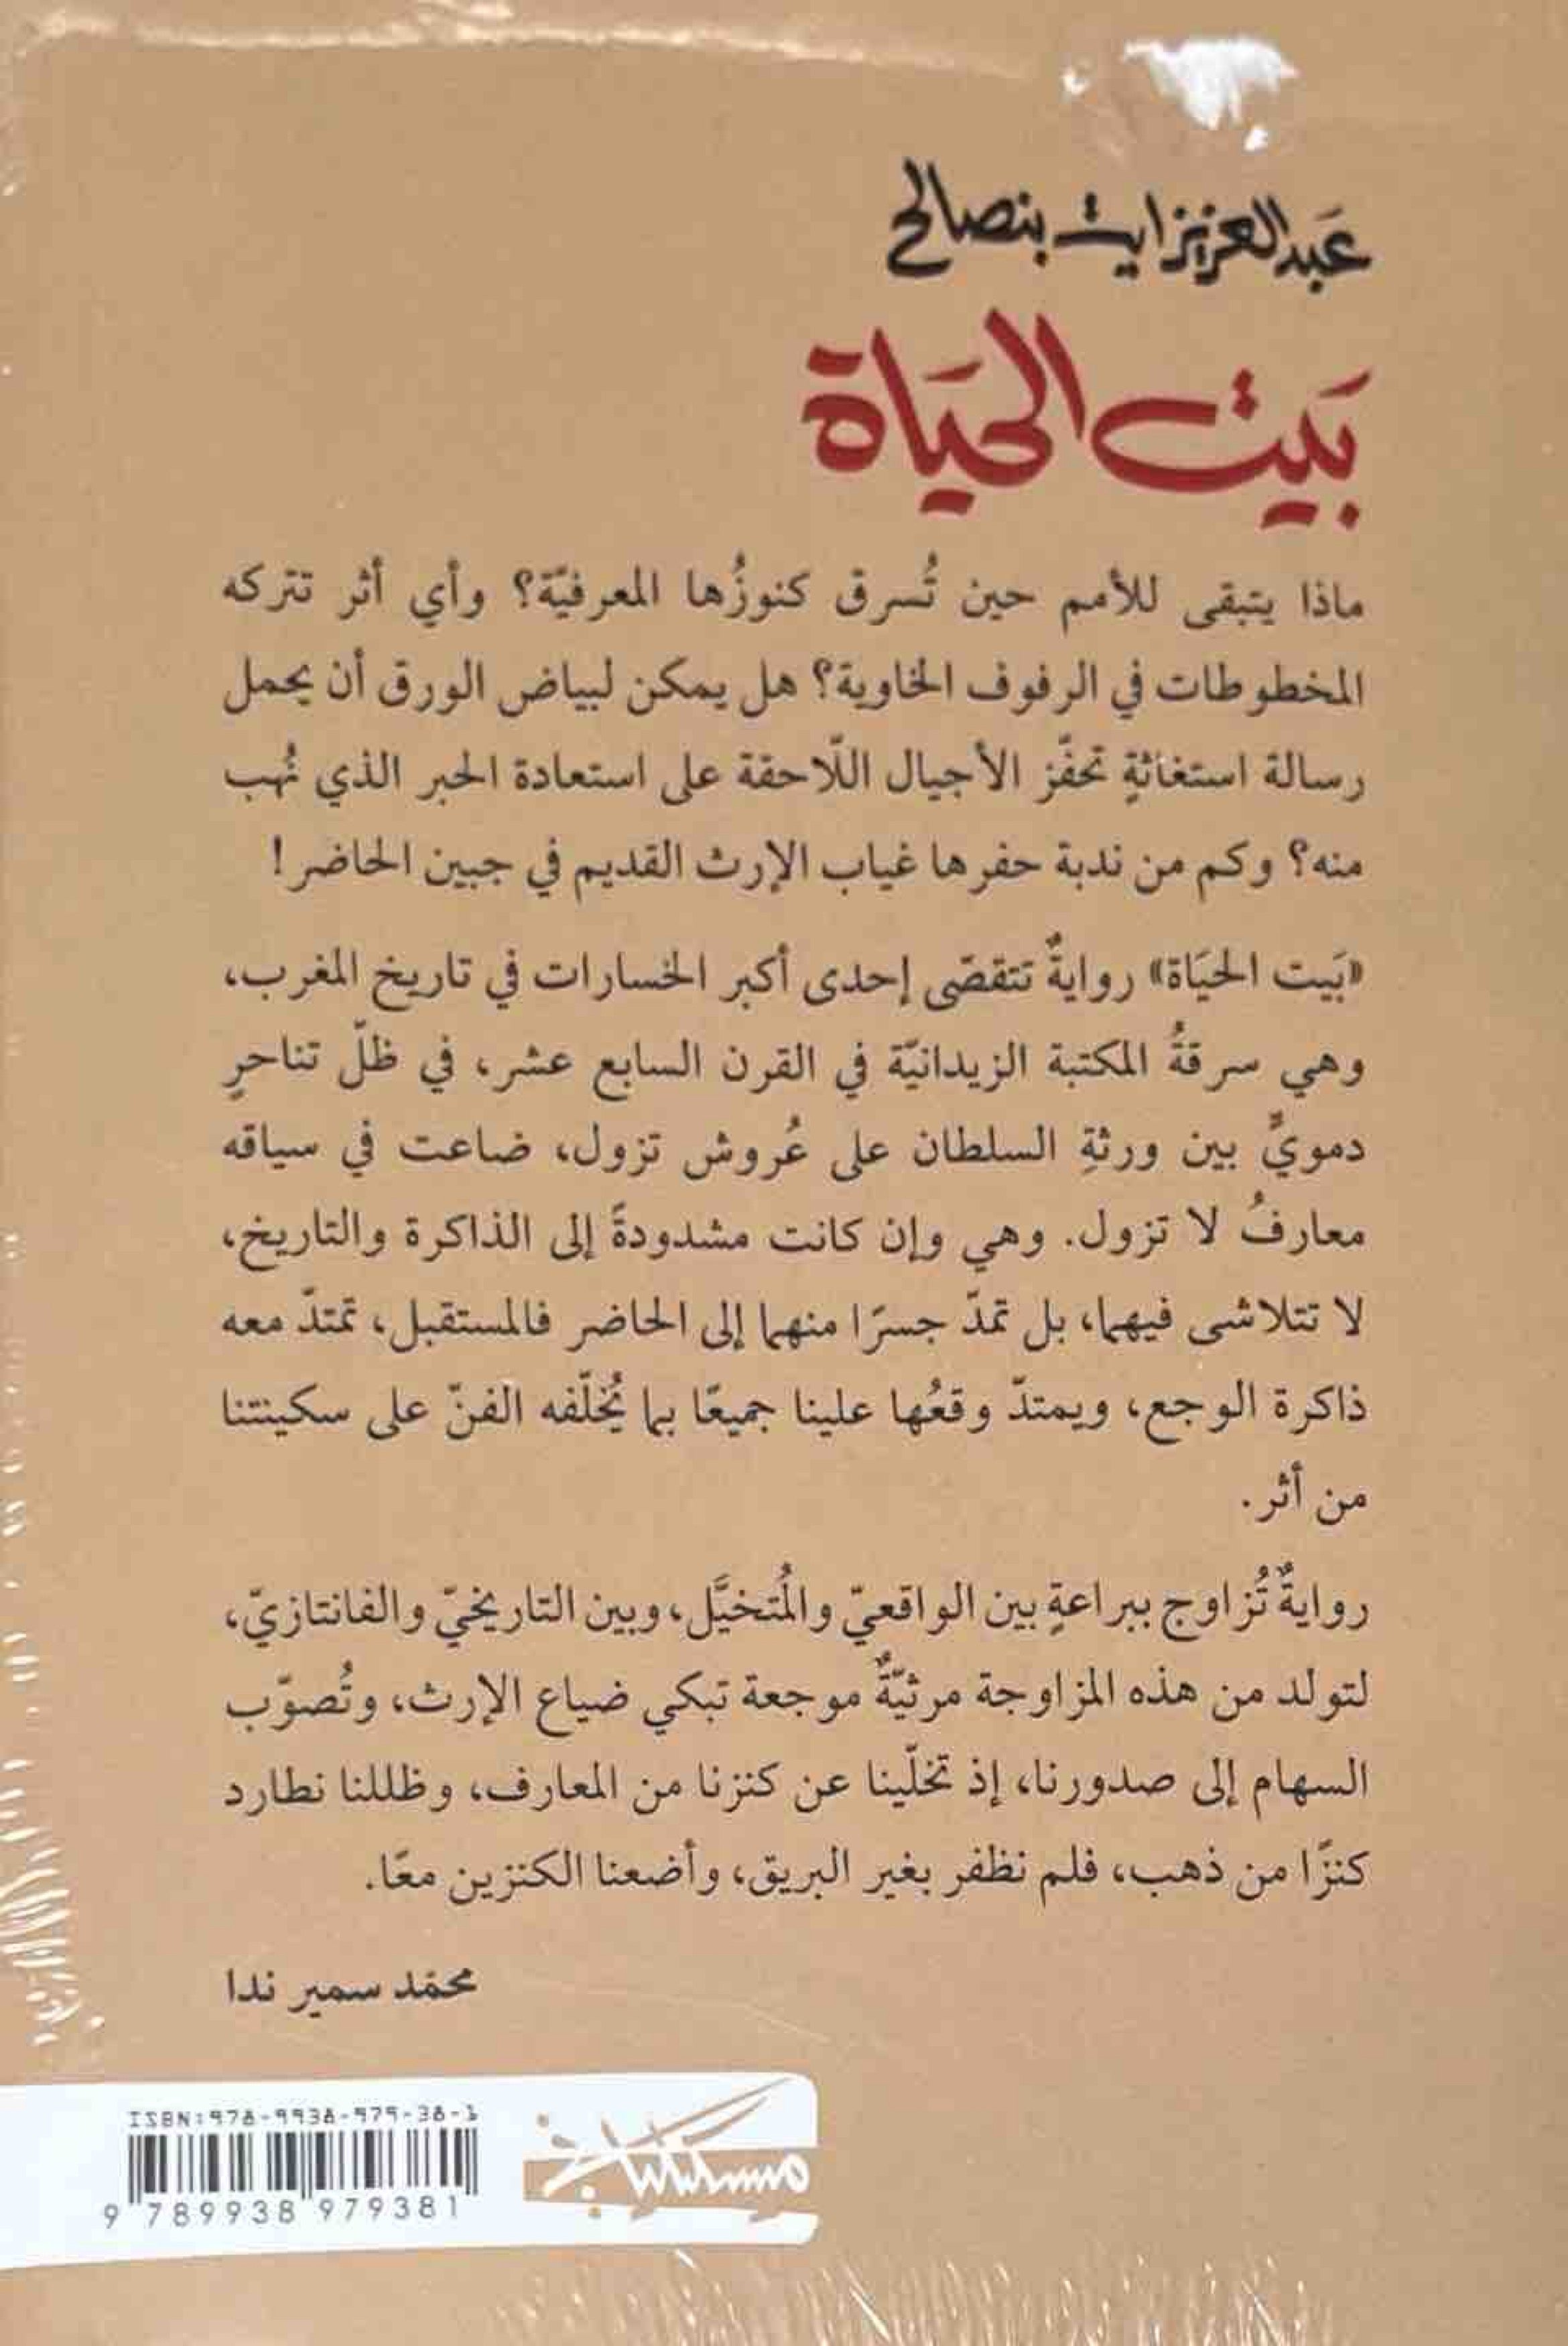 عَبدالعزيز ايت بنصالح
بَيت الحَياة
ماذا يتبقى للأمم حين تُسرق كنوزُها المعرفيّة؟ وأي أثر تتركه
المخطوطات في الرفوف الخاوية؟ هل يمكن لبياض الورق أن يحمل
رسالة استغاثةٍ تحفّز الأجيال اللّاحقة على استعادة الحبر الذي نُهب
منه؟ وكم من ندبة حفرها غياب الإرث القديم في جبين الحاضر!
«بَيت الحَيَاة» روايةٌ تتقصّى إحدى أكبر الخسارات في تاريخ المغرب،
وهي سرقةُ المكتبة الزيدانيّة في القرن السابع عشر، في ظلّ تناحرٍ
دمويٍّ بين ورثةِ السلطان على عُروش تزول، ضاعت في سياقه
معارفُ لا تزول. وهي وإن كانت مشدودةً إلى الذاكرة والتاريخ،
لا تتلاشى فيهما، بل تمدّ جسرًا منهما إلى الحاضر فالمستقبل، تمتدّ معه
ذاكرة الوجع، ويمتدّ وقعُها علينا جميعًا بما يُخلّفه الفنّ على سكينتنا
من أثر.
روايةٌ تُزاوج ببراعةٍ بين الواقعيّ والمُتخيَّل، وبين التاريخيّ والفانتازيّ،
لتولد من هذه المزاوجة مرثيّةٌ موجعة تبكي ضياع الإرث، وتُصوّب
السهام إلى صدورنا، إذ تخلّينا عن كنزنا من المعارف، وظللنا نطارد
كنزًا من ذهب، فلم نظفر بغير البريق، وأضعنا الكنزين معًا.
محمّد سمير ندا
ISBN:978-9938-979-38-1
9 789938 979381
مسكيلياني